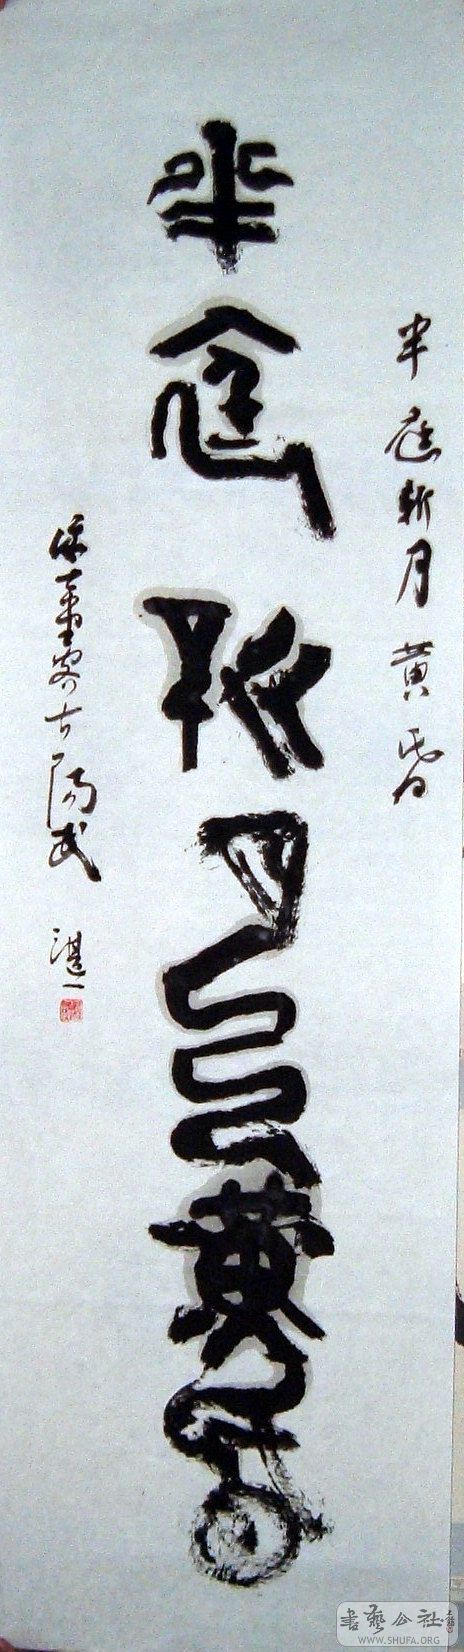 半庭新月黄昏
半庭新月已黄昏
客古陽武 湛一
書藝公社
WWW.SHUFA.ORG